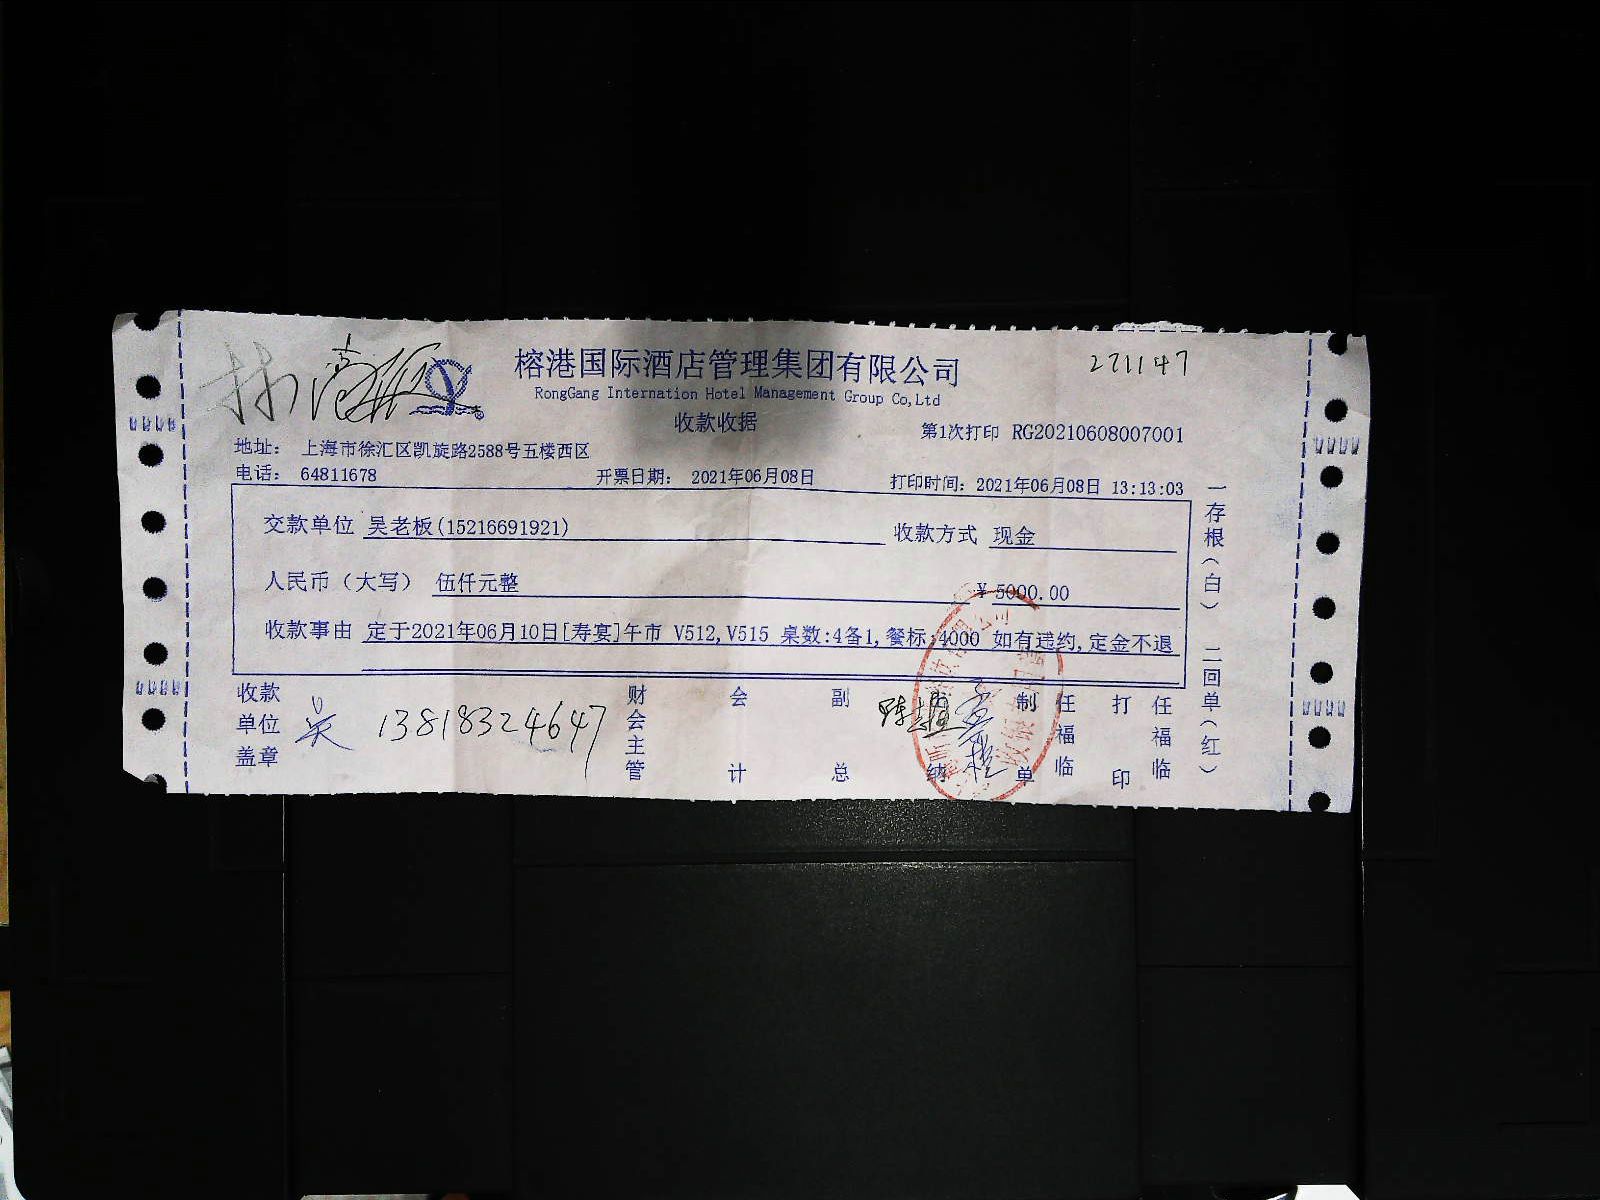 榕港国际酒店管理集团有限公司
271147
RongGang Internation Hotel Management Group Co,Ltd
收款收据
第1次打印 RG20210608007001
地址： 上海市徐汇区凯旋路2588号五楼西区
电话： 64811678 开票日期： 2021年06月08日 打印时间：2021年06月08日 13:13:03
交款单位 吴老板(15216691921) 收款方式 现金
人民币（大写） 伍仟元整 ¥ 5000.00
收款事由 定于2021年06月10日[寿宴]午市 V512,V515 桌数:4备1,餐标:4000 如有违约,定金不退
收款单位盖章 吴 13818324647 财会主管 会计 副总 制单 任福临 打印 任福临
一存根（白） 二回单（红）